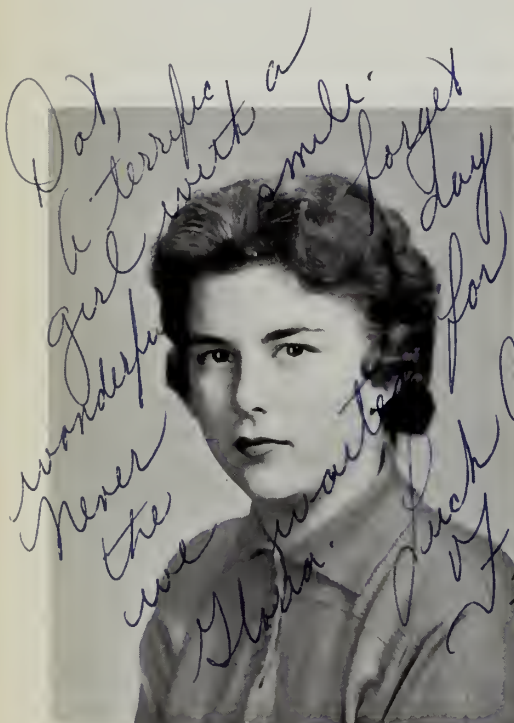 Dot,
A terrific
girl with a
wonderful smile.
Never forget
the day
we waited for
Gloria. Luck